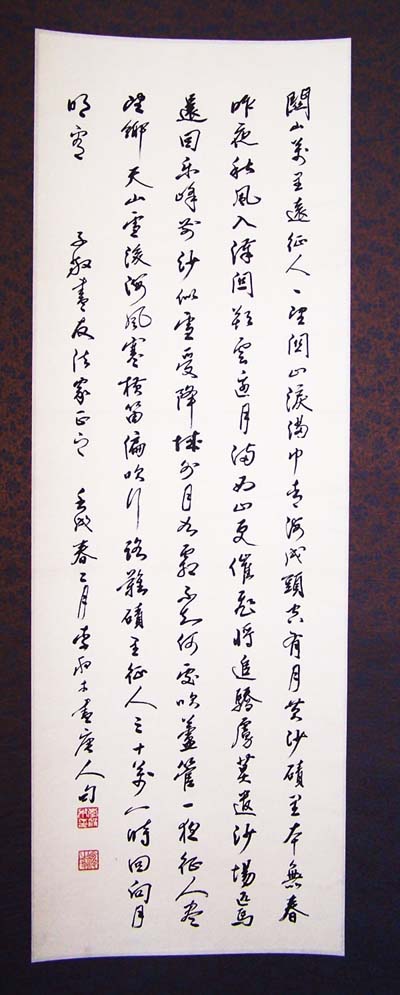 關山萬里遠征人一望關山淚滿巾青海戍頭空有月黃沙磧里本無春
昨夜秋風入漢關朔雲邊月滿西山更催飛將追驕虜莫遣沙場匹馬
還回樂峰前沙似雪受降城外月如霜不知何處吹蘆管一夜征人盡
望鄉天山雪後海風寒橫笛偏吹行路難磧里征人三十萬一時回向月
明看 子敬書友法家正之 壬戌春二月李雨木書唐人句